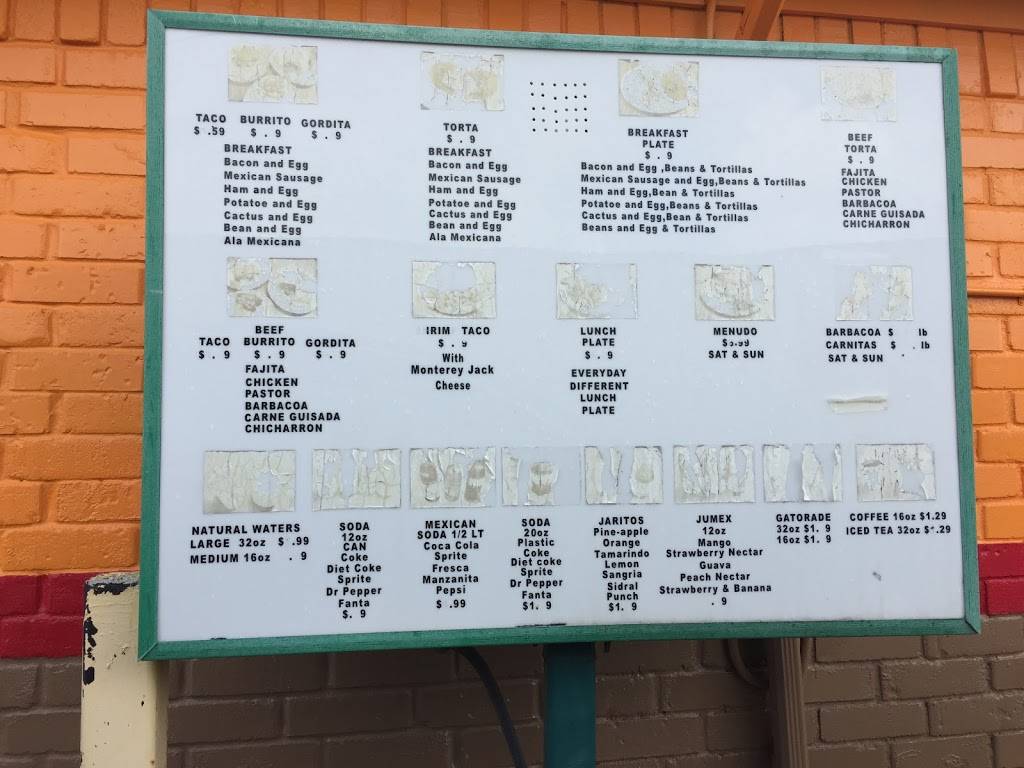 TACO BURRITO GORDITA
$ .59 $ . 9 $ . 9
BREAKFAST
Bacon and Egg
Mexican Sausage
Ham and Egg
Potatoe and Egg
Cactus and Egg
Bean and Egg
Ala Mexicana
TORTA
$ . 9
BREAKFAST
Bacon and Egg
Mexican Sausage
Ham and Egg
Potatoe and Egg
Cactus and Egg
Bean and Egg
Ala Mexicana
BREAKFAST
PLATE
$ . 9
Bacon and Egg ,Beans & Tortillas
Mexican Sausage and Egg,Beans & Tortillas
Ham and Egg,Bean & Tortillas
Potatoe and Egg,Beans & Tortillas
Cactus and Egg,Bean & Tortillas
Beans and Egg & Tortillas
BEEF
TORTA
$ . 9
FAJITA
CHICKEN
PASTOR
BARBACOA
CARNE GUISADA
CHICHARRON
BEEF
TACO BURRITO GORDITA
$ . 9 $ . 9 $ . 9
FAJITA
CHICKEN
PASTOR
BARBACOA
CARNE GUISADA
CHICHARRON
IRIM TACO
$ . 9
With
Monterey Jack
Cheese
LUNCH
PLATE
$ . 9
EVERYDAY
DIFFERENT
LUNCH
PLATE
MENUDO
$ .99
SAT & SUN
BARBACOA $ lb
CARNITAS $ . lb
SAT & SUN
NATURAL WATERS
LARGE 32oz $ .99
MEDIUM 16oz . 9
SODA
12oz
CAN
Coke
Diet Coke
Sprite
Dr Pepper
Fanta
$. 9
MEXICAN
SODA 1/2 LT
Coca Cola
Sprite
Fresca
Manzanita
Pepsi
$ .99
SODA
20oz
Plastic
Coke
Diet coke
Sprite
Dr Pepper
Fanta
$1. 9
JARITOS
Pine-apple
Orange
Tamarindo
Lemon
Sangria
Sidral
Punch
$1. 9
JUMEX
12oz
Mango
Strawberry Nectar
Guava
Peach Nectar
Strawberry & Banana
. 9
GATORADE
32oz $1. 9
16oz $1. 9
COFFEE 16oz $1.29
ICED TEA 32oz $ .29